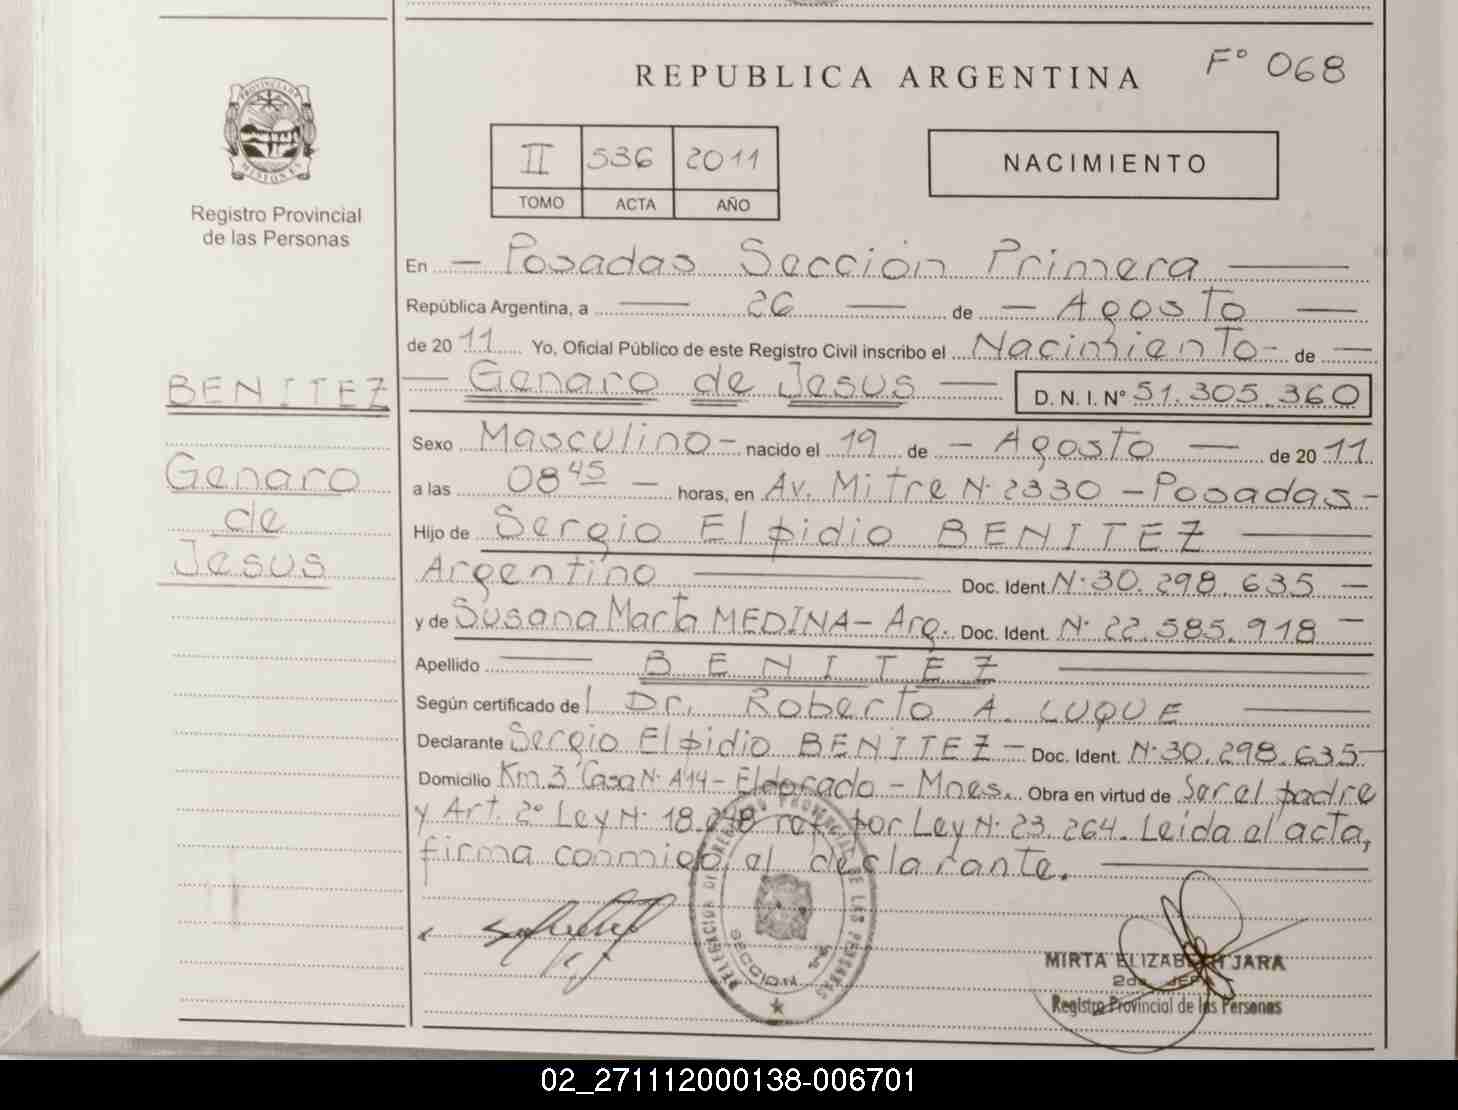 REPUBLICA ARGENTINA
Fº 068
PROVINCIA DE
MISIONES
Registro Provincial
de las Personas
II 536 2011
TOMO ACTA AÑO
NACIMIENTO
En — Posadas Sección Primera —
República Argentina, a — 26 — de — Agosto —
de 2011 Yo, Oficial Público de este Registro Civil inscribo el Nacimiento - de —
— Genaro de Jesus — D. N. I. Nº 51.305.360
BENITEZ
Genaro
de
Jesus
Sexo Masculino - nacido el 19 de - Agosto — de 2011
a las 08 45 — horas, en Av. Mitre N· 2330 - Posadas -
Hijo de Sergio Elpidio BENITEZ —
Argentino — Doc. Ident. N· 30.298.635 —
y de Susana Marta MEDINA - Arg. Doc. Ident. N· 22.585.918 —
Apellido — BENITEZ —
Según certificado del Dr. Roberto A. LUQUE —
Declarante Sergio Elpidio BENITEZ - Doc. Ident. N· 30.298.635 -
Domicilio Km 3 Casa N· A14 - Eldorado - Mnes. Obra en virtud de Ser el padre
y Art. 2º Ley N· 18.248 ref. por Ley N· 23.264. Leida el acta,
firma conmigo el declarante. —
DELEGACION DEL REGISTRO PROVINCIAL DE LAS PERSONAS
SECCION 1ª
MIRTA ELIZABETH JARA
2da. JEFE
Registro Provincial de las Personas
02_271112000138-006701